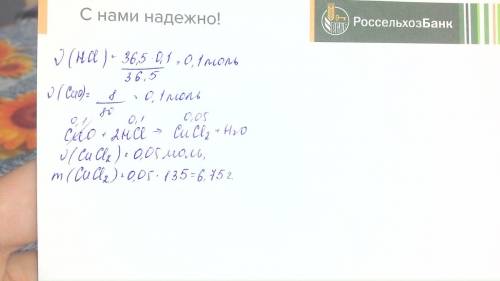 С нами надежно!
РоссельхозБанк
ν(HCl) = 36,5·0,1/36,5 = 0,1 моль
ν(CuO) = 8/80 = 0,1 моль
0,1 0,1 0,05
CuO + 2HCl = CuCl₂ + H₂O
ν(CuCl₂) = 0,05 моль,
m(CuCl₂) = 0,05 · 135 = 6,75 г